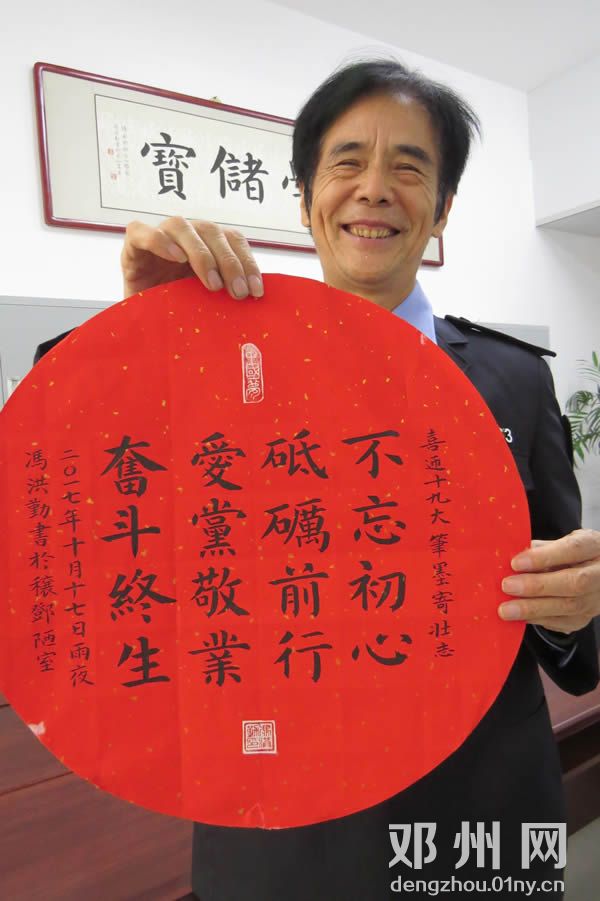 寶儲
中國夢
喜迎十九大筆墨寄壯志
不忘初心
砥礪前行
愛黨敬業
奮斗終生
二〇一七年十月十七日雨夜
馮洪勤書於穰鄧陋室
3
邓州网
dengzhou.01ny.cn